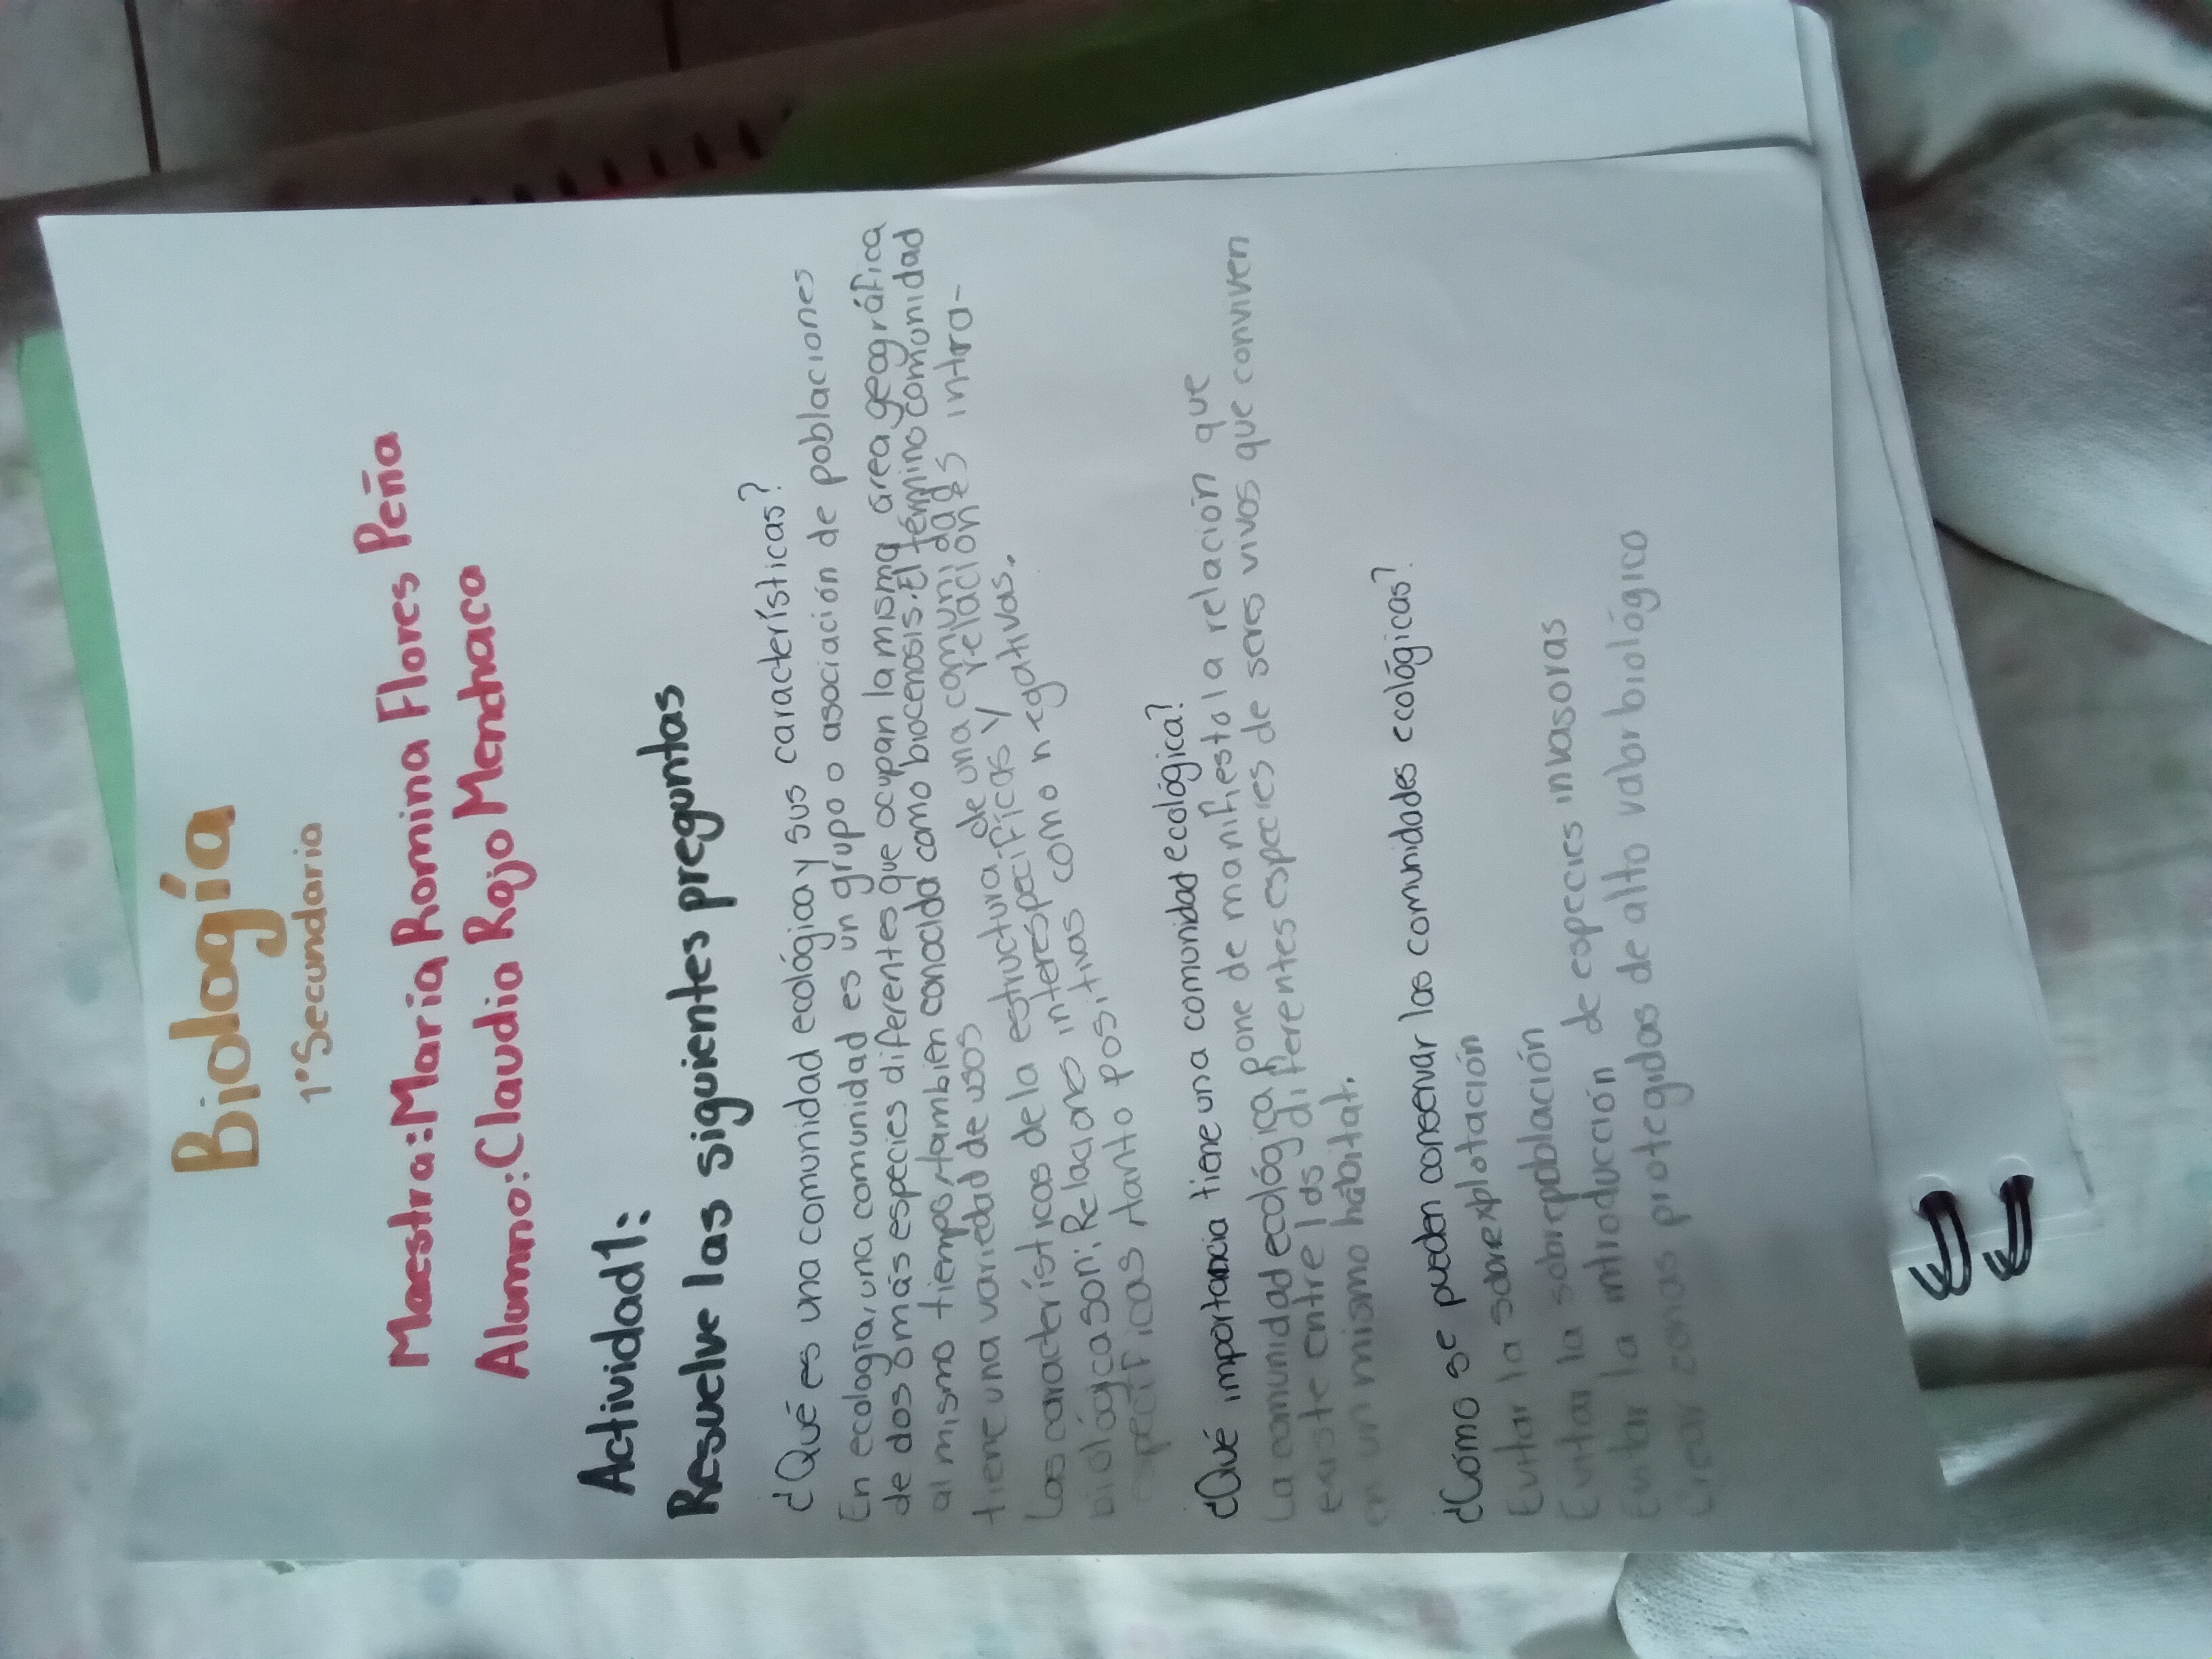 Biología
1° Secundaria
Maestra: María Romina Flores Peña
Alumno: Claudia Rojo Menchaca
Actividad 1:
Resuelve las siguientes preguntas
¿Qué es una comunidad ecológica y sus características?
En ecología, una comunidad es un grupo o asociación de poblaciones
de dos o más especies diferentes que ocupan la misma área geográfica
al mismo tiempo, también conocida como biocenosis. El término comunidad
tiene una variedad de usos
Las características de la estructura de una comunidad
biológica son: Relaciones interespecíficas y relaciones intra-
específicas tanto positivas como negativas.
¿Qué importancia tiene una comunidad ecológica?
La comunidad ecológica pone de manifiesto la relación que
existe entre las diferentes especies de seres vivos que conviven
en un mismo hábitat.
¿Cómo se pueden conservar las comunidades ecológicas?
Evitar la sobrexplotación
Evitar la sobrepoblación
Evitar la introducción de especies invasoras
Crear zonas protegidas de alto valor biológico